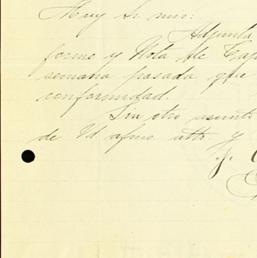 Muy Sr. mio:
Adjunta
forme y Nota de Caja
semana pasada que
conformidad.
Sin otro asunto
de Vd. afmo. atto. y